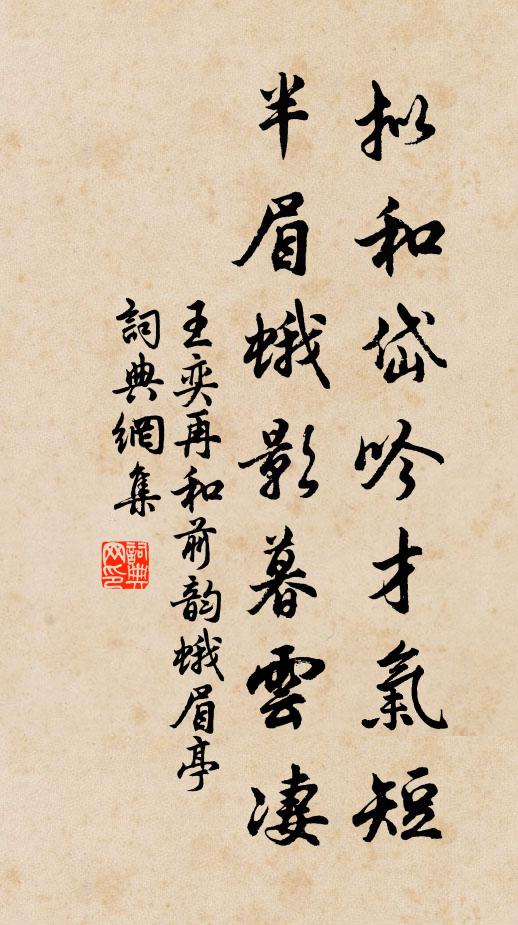 拟和岱吟才氣短
半眉蛾影暮雲凄
王奕再和前韵蛾眉亭
詞典網集
詞典网印